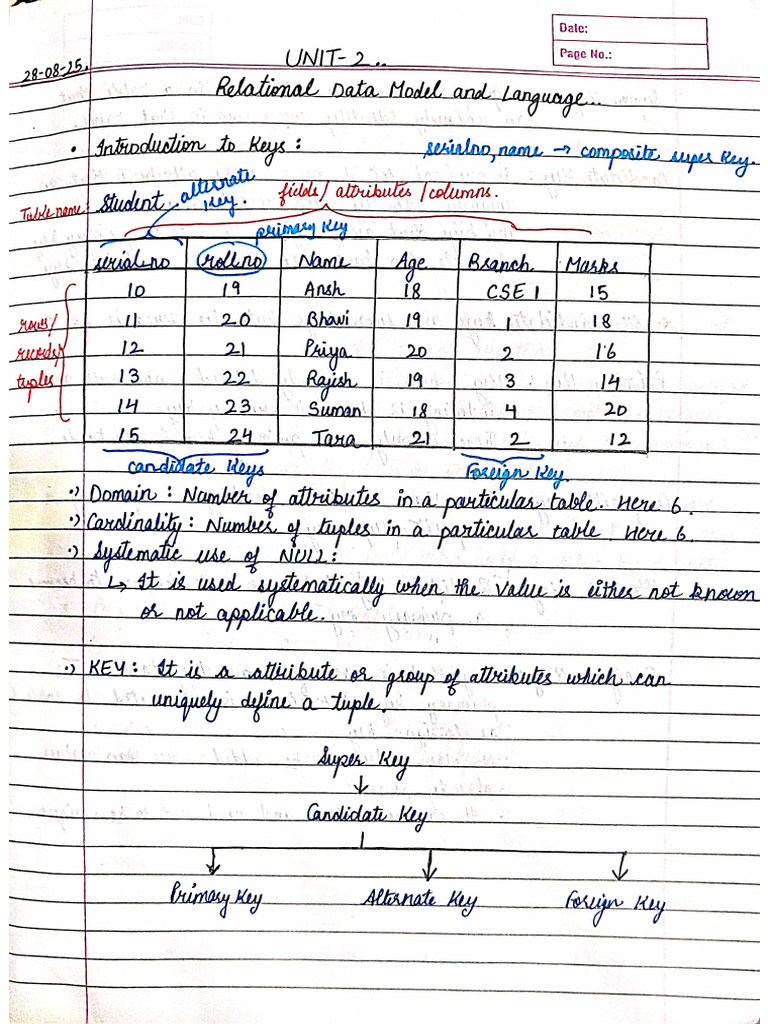 Date:
Page No.:
28-08-25.
UNIT-2..
Relational Data Model and Language..
• Introduction to Keys:
serialno, name → composite super key.
Table name
Student
alternate key.
fields/attributes/columns.
primary key
serial.no rollno Name Age Branch Marks
10 19 Ansh 18 CSE 1 15
11 20 Bhavi 19 1 18
12 21 Priya 20 2 16
13 22 Rajish 19 3 14
14 23 Suman 18 4 20
15 24 Tara 21 2 12
rows/
records/
tuples
candidate keys
foreign key.
•) Domain: Number of attributes in a particular table. Here 6.
•) Cardinality: Number of tuples in a particular table. Here 6.
•) Systematic use of NULL:
↳ It is used systematically when the value is either not known
or not applicable.
•) KEY: It is a attribute or group of attributes which can
uniquely define a tuple.
Super Key
↓
Candidate Key
Primary Key Alternate Key Foreign Key